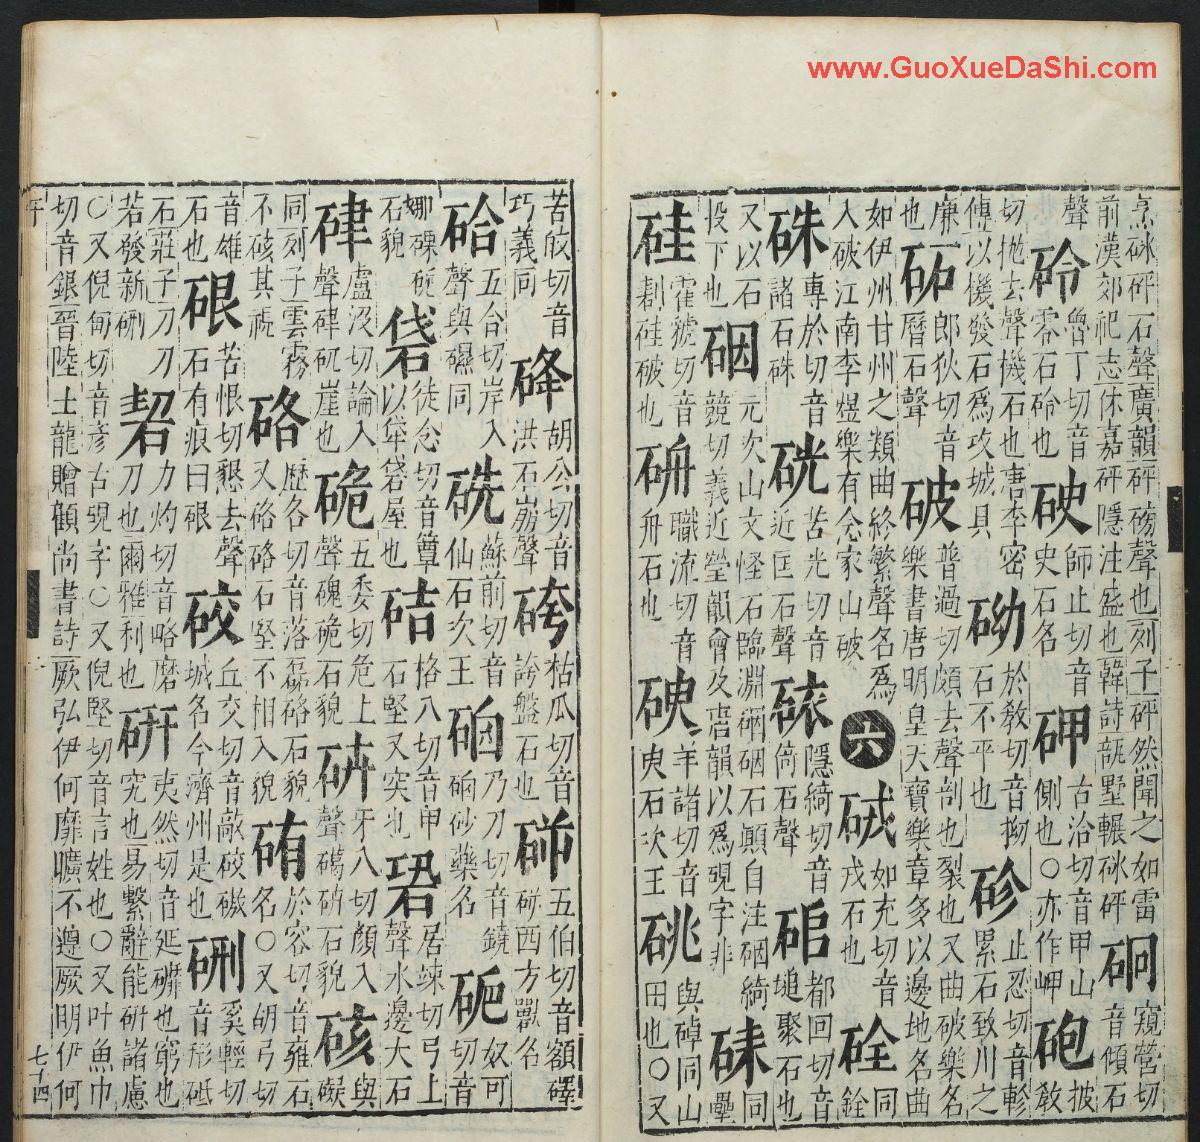 www.GuoXueDaShi.com
烹砯砰石聲廣韻砰磅聲也列子砰然聞之如雷
前漢郊祀志休嘉砰隱注盛也韓詩瓾墅輾砯砰
硐窺營切音傾石
聲
砱魯丁切音零石砱也
硖師止切音史石名
砷古洽切音甲山側也○亦作岬
砲披敎
切抛去聲機石也唐李密傳以機發石爲攻城具
砌於敎切音拗石不平也
砛止忍切音軫累石致川之
廉也
砳郎狄切音曆石聲
破普過切頗去聲剖也裂也又曲破樂名
樂書唐明皇天寶樂章多以邊地名曲
如伊州甘州之類曲終繁聲名爲
入破江南李煜樂有念家山破
六
硪如充切音戎石也
硂同銓
硃專於切音諸石硃
硄苦光切音近匡石聲
𥑴隱綺切音倚石聲
硊都回切音塠聚石也
又以石投下也
硱元次山文怪石臨淵硱硱石顚自注硱綺
競切義近瑩韻會及唐韻以爲硯字非
硅霍虢切音剨硅破也
硃職流切音舟石也
硬羊諸切音臾石次玉
硃同壘
硃與䂪同山田也○又
苦皎切音巧義同
硭胡公切音洪石崩聲
硣枯瓜切音誇盤石也
硑五伯切音額礋
硑西方獸名
硆五合切岸入聲與礘同
硃蘇前切音仙石次玉
硇乃刀切音鐃硇砂藥名
砨奴可切音
娜磥砨石貌
帒徒念切音簟以帒袋屋也
硈格八切音甲石堅又突也
碧居竦切弓上聲水邊大石
硉盧沒切論入聲硉矹崖也
硊五委切危上聲磈硊石貌
砑牙八切顏入聲磍砑石貌
硋與礙
同列子雲霧不硋其視
硌歷各切音落磊硌石貌
又硌硌石堅不相入貌
硧於容切音雍石名○又胡弓切
音雄石也
硍苦恨切懇去聲石有痕曰硍
硣丘交切音敲硣磝
城名今濟州是也
硎奚輕切音形砥
石莊子刀刃若發新硎
䂮力灼切音略磨刀也爾雅利也
硏夷然切音延礦也窮也究也易繫辭能硏諸慮
○又倪甸切音彥古硯字○又倪堅切音言姓也○又叶魚巾
切音銀晉陸士龍贈顧尚書詩厥弘伊何靡曠不遵厥明伊何
七十四